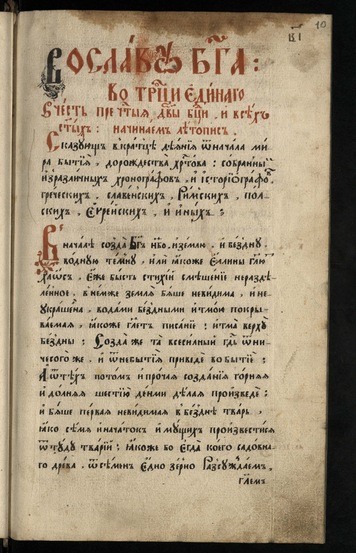 10
ВІ
Вославꙋ Бг҃а :
Во трⷪ҇ци единаго
И честь прⷱ҇тыѧ дв҃ы бц҃ы , и всѣхъ
ст҃ыхъ : начинаемъ лѣтопись
Сказующъ вкратцѣ деѧнїѧ ѿначала ми
ра бытиѧ , дорождества хрⷭ҇това : собранныи
изразличныхъ хронографовъ , и історїографоⷡ
греческихъ , славенскихъ , Римскихъ , пол
скихъ , Еѵрейскихъ , и иныхъ .
Вначалѣ созда Бг҃ъ нб҃о , иземлю , и бездну
водную темну , или ꙗкоже Еллины гл҃ю
хаѡсъ , Еже бысть стихїй смѣшенїе нераздѣ
ленное . внемже землѧ бѧше невидима , и не
украшена , водами бездными итмою покры
ваемаѧ , ꙗкоже гл҃етъ писанїе : итма верху
бездны : Созда же та всесилный гд҃ь ѿни
чесогѡ же , и ѿнебытиѧ приведе во бытїе :
А ѿтѣхъ потомъ и прочаѧ созданїѧ горнѧѧ
и долнѧѧ шестїю денми дѣлаѧ произведе :
и бѧше перваѧ невидимаѧ в безднѣ тварь ,
ꙗко сѣмѧ иначатокъ имущихъ произвестисѧ
ѿтуду тварїй : ꙗкоже во Егда коего садовна
го древа , ѿсѣменъ Едно зерно Разсуждаемъ ,
гл҃емъ